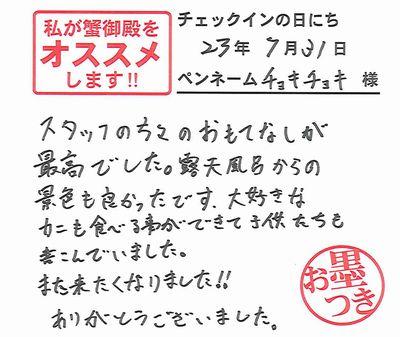 私が蟹御殿を
オススメ
します!!
チェックインの日にち
23年7月31日
ペンネーム チョキチョキ 様
スタッフの方々のおもてなしが
最高でした。露天風呂からの
景色も良かったです。大好きな
カニも食べる事ができて子供たちも
喜こんでいました。
また来たくなりました!!
ありがとうございました。
お墨つき